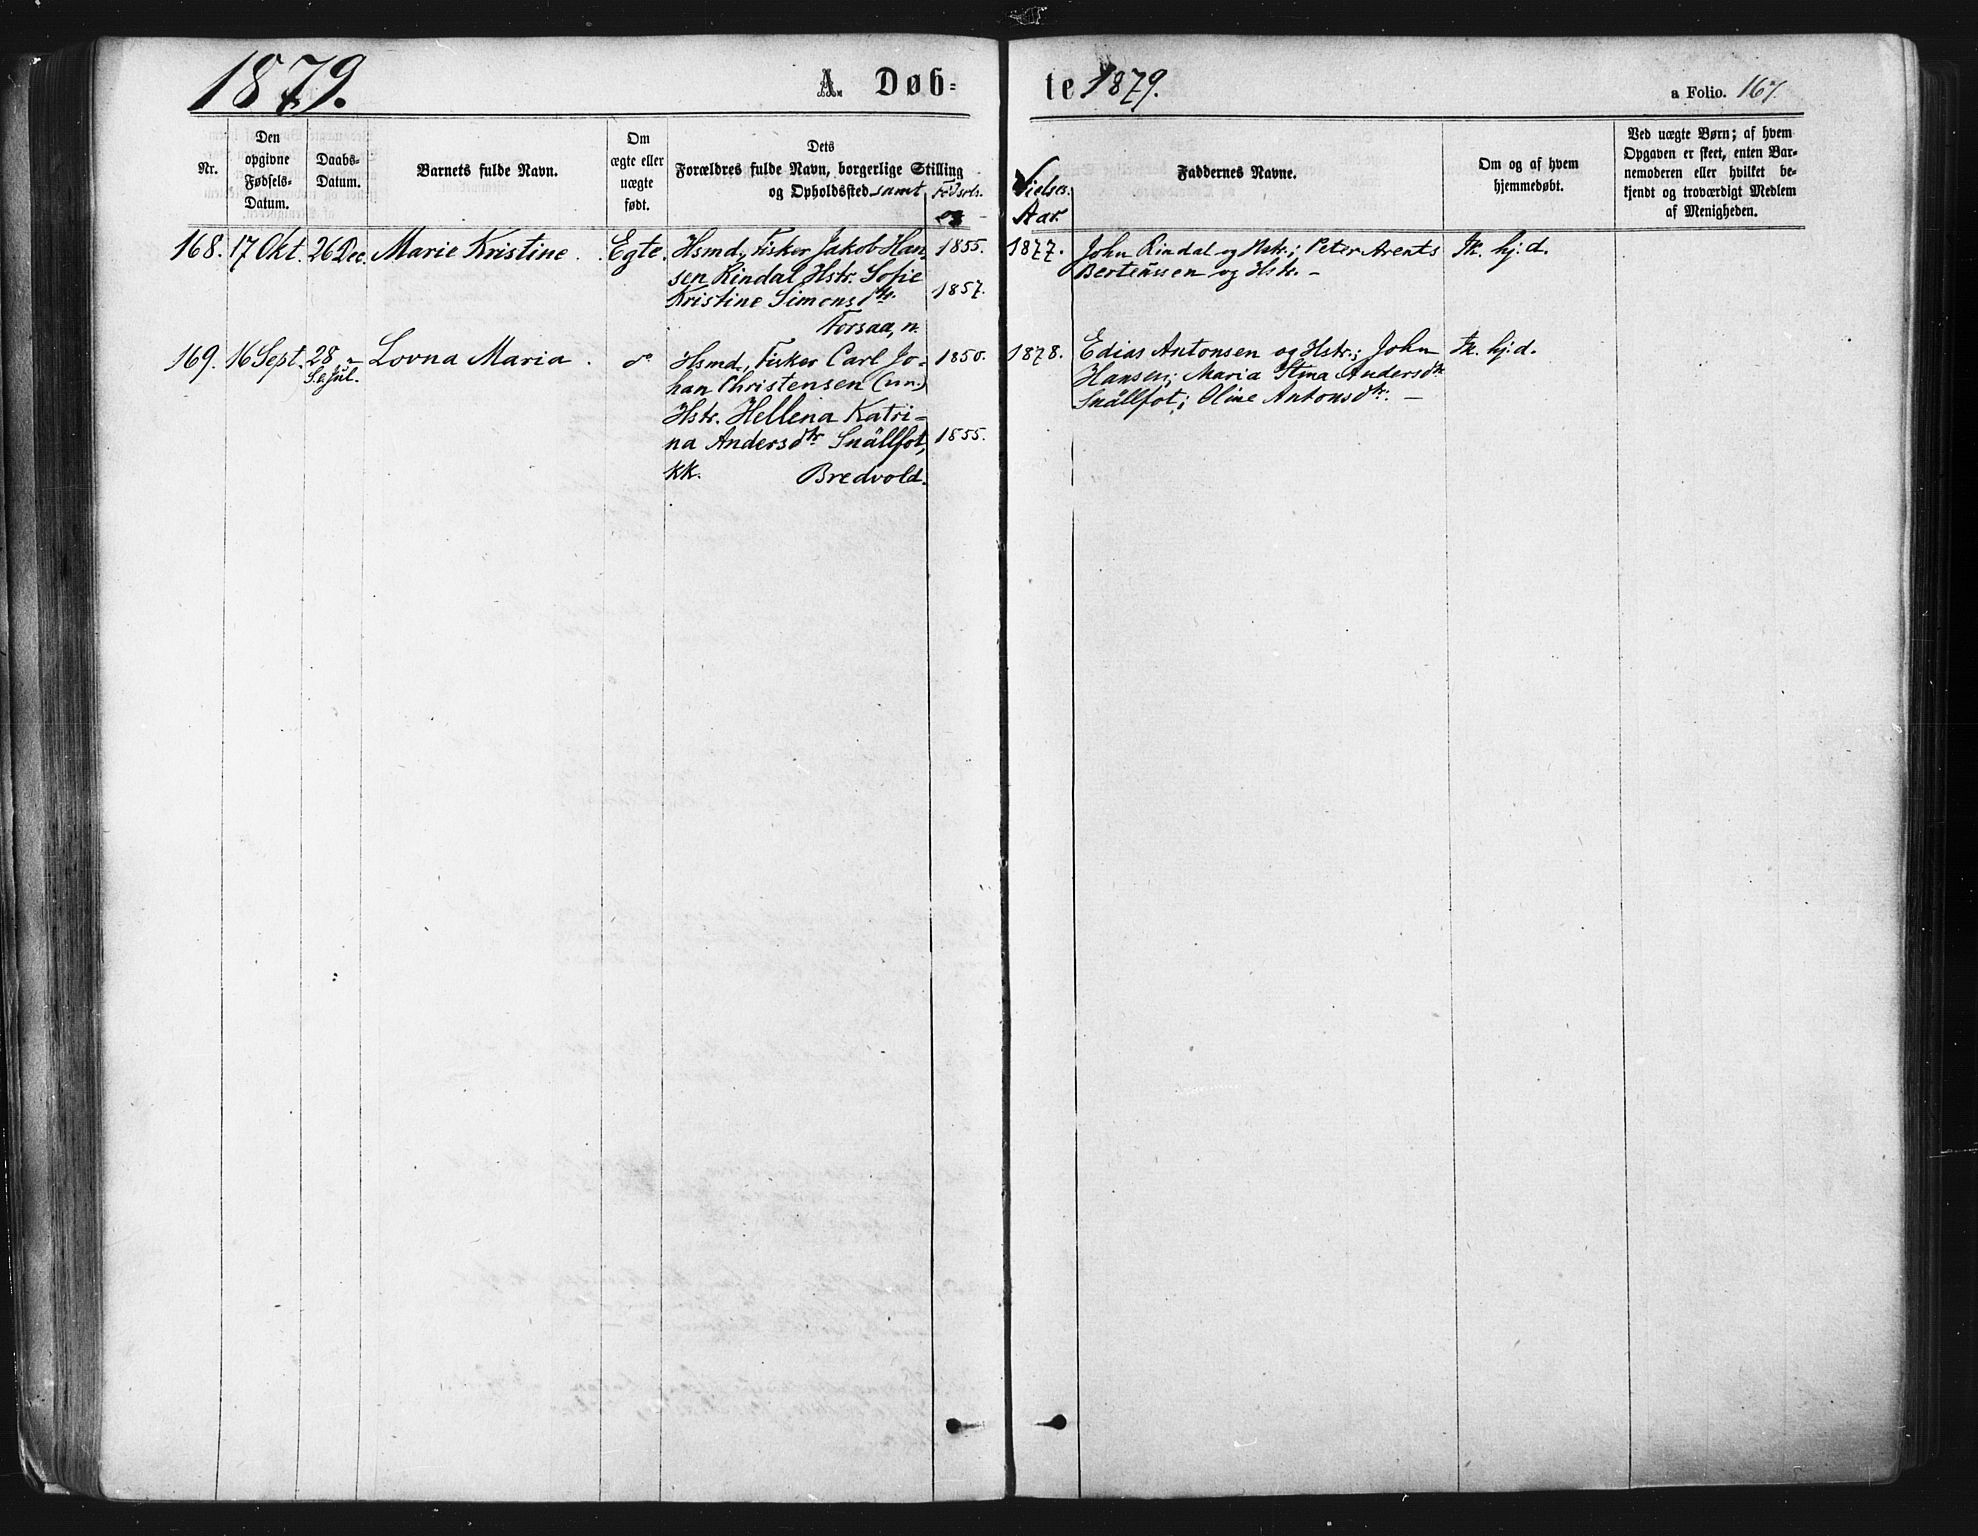 1879.
A. Døb-
te 1879.
a Folio. 167.
Nr.
Den
opgivne
Fødsels-
Datum.
Daabs-
Datum.
Barnets fulde Navn.
Om
ægte eller
uægte
født.
Dets
Forældres fulde Navn, borgerlige Stilling
og Opholdssted samt Fødsels-
og
Vielses
Aar
Faddernes Navne.
Om og af hvem
hjemmedøbt.
Ved uægte Børn; af hvem
Opgaven er skeet, enten Bar-
nemoderen eller hvilket be-
kjendt og troværdigt Medlem
af Menigheden.
168. 17 Okt. 26 Dec. Marie Kristine. Egte. Hsmd., Fisker Jakob Han- 1855. 1877. John Rindal og Hstr.; Peter Arents Tk. hj.d.
sen Rindal Hstr. Sofie Berteussen og Hstr. –
Kristine Simonsdtr. 1857.
Forsaa, n.
169. 16 Sept. 28 – Lovna Maria. do Hsmd., Fisker Carl Jo- 1850. 1878. Edias Antonsen og Hstr.; John Tk. hj.d.
S.e.Jul. han Christensen (nn.) Hansen; Maria Stina Andersdtr
Hstr. Hellena Katri- Snällfot; Oline Antonsdtr. –
na Andersdtr Snällfot, 1855.
kk. Bredvold.